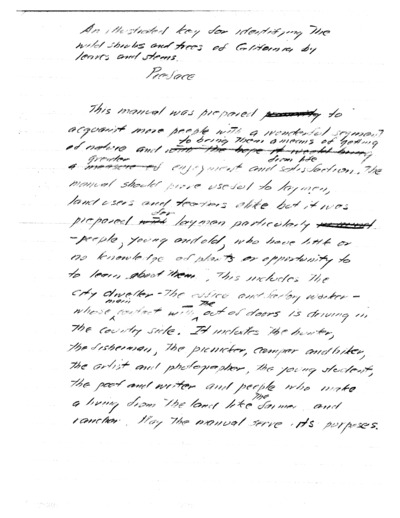 An illustrated key for identifying the
wild shrubs and trees of California by
leaves and stems.
Preface
This manual was prepared to
acquaint more people with a wonderful segment
of nature and to bring them a means of getting
greater enjoyment and satisfaction from life. The
manual should prove useful to laymen,
land users and teachers alike but it was
prepared for layman particularly
-people, young and old, who have little or
no knowledge of plants or opportunity to
to learn about them. This includes the
city dweller - the office and factory worker -
whose main contact with the out of doors is driving in
the country side. It includes the hunter,
the fisherman, the picnicker, camper and hiker,
the artist and photographer, the young student,
the poet and writer and people who make
a living from the land like the farmer and
rancher. May the manual serve its purposes.